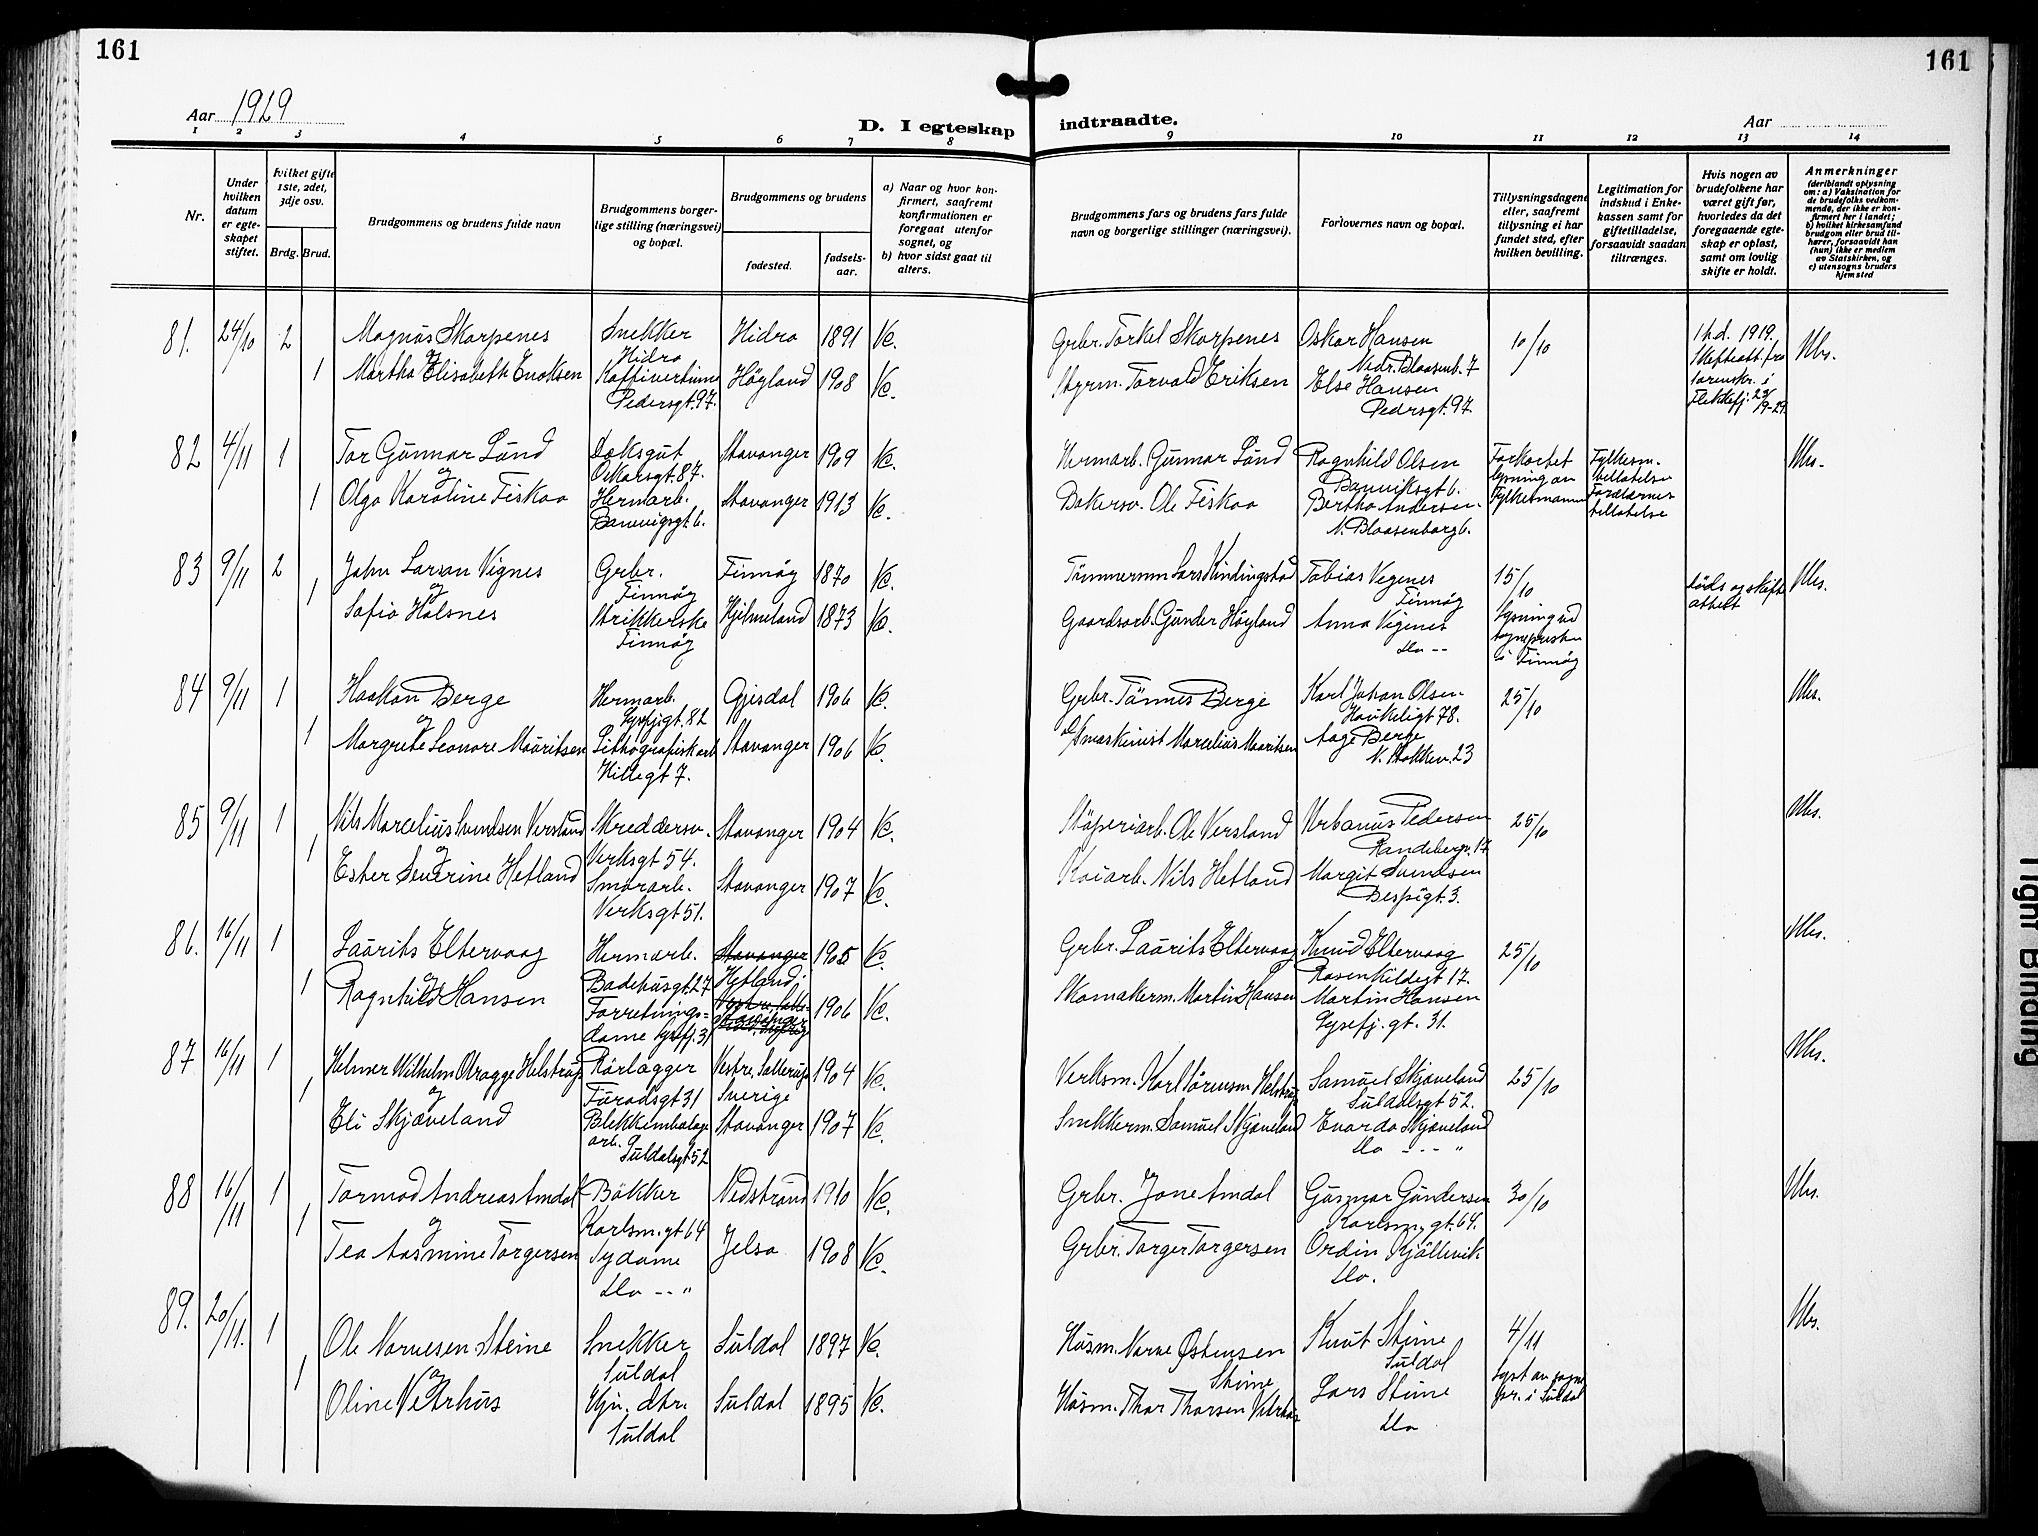 161
161
Aar 1929
D. I egteskap indtraadte.
Aar
1 2 3 4 5 6 7 8 9 10 11 12 13 14
Nr.
Under hvilken datum er egteskapet stiftet.
hvilket gifte 1ste, 2det, 3dje osv.
Brdg. Brud.
Brudgommens og brudens fulde navn
Brudgommens borgerlige stilling (næringsvei) og bopæl.
Brudgommens og brudens
fødested.
fødselsaar.
a) Naar og hvor konfirmert, saafremt konfirmationen er foregaat utenfor sognet, og
b) hvor sidst gaat til alters.
Brudgommens fars og brudens fars fulde navn og borgerlige stillinger (næringsvei).
Forlovernes navn og bopæl.
Tillysningsdagene eller, saafremt tillysning ei har fundet sted, efter hvilken bevilling.
Legitimation for indskud i Enkekassen samt for giftetilladelse, forsaavidt saadan tiltrænges.
Hvis nogen av brudefolkene har været gift før, hvorledes da det foregaaende egteskap er opløst, samt om lovlig skifte er holdt.
Anmerkninger (deriblandt oplysning om: a) Vaksination for de brudefolks vedkommende, der ikke er konfirmert her i landet; b) hvilket kirkesamfund brudgom eller brud tilhører, forsaavidt han (hun) ikke er medlem av Statskirken, og c) utensogns bruders hjemsted
81. 24/10 2 Magnus Skarpenes Snekker Hidra Hidra 1891 Grbr. Torkel Skarpenes Oskar Hansen Nedr. Blaasenb. 7 10/10 1 h.d. 1919. Skifteatt. fra sorenskr. i Flekkefj. 23/9-29.
og
1 Martha Elisabeth Enoksen Kaffivertinne Pedersgt. 97. Høyland 1908 Styrm. Torvald Eriksen Else Hansen Pedersgt. 97.
82 4/11 1 Tor Gunnar Lund Oskarsgt. 87. Stavanger 1909 Hermarb. Gunnar Lund Ragnhild Olsen Banevigsgt 6. Forkortet lysning av Fylkesmann Fylkesm. tillatelse Forældrenes tillatelse
og
1 Olga Karoline Fiskaa Hermarb. Banevigsgt. 6. Stavanger 1913 Bakersv. Ole Fiskaa Bertha Andersen. N. Blaasenborg 6.
83 9/11 2 John Larsen Vignes Grbr. Finnøy Finnøy 1870 Tømmermn Lars Kindingstad Tobias Vegenes Finnøy 15/10 Lysning ved sogneprest i Finnøy Døds og skifte attest
og
1 Sofie Halsnes Strikkerske Finnøy Hjelmeland 1873 Gaardsarb. Gunder Høyland Anna Vigenes do --
84 9/11 1 Haakon Berge Hermarb. Lysefjgt. 82 Gjesdal 1906 Grbr. Tønnes Berge Karl Johan Olsen. Haukeligt 78. 25/10
og
1 Margrete Leonore Mauritsen Lithografisk arb Hillegt 7. Stavanger 1906 maskinist Marcelius Mauritsen Aage Berge N. Stokkev. 23
85 9/11 1 Nils Marcelius Svendsen Versland Skreddersv. Verksgt 54. Stavanger 1904 Støperiarb. Ole Versland Urbanus Pedersen Randabergv. 17 25/10
og
1 Ester Severine Hetland Smørarb. Verksgt 51. Stavanger 1907 Kaiarb. Nils Hetland Margit Svendsen
86. 16/11 1 Laurits Eltervaag Hermarb. Badehusgt. 27 Stavanger Hetland 1905 Grbr. Laurits Eltervaag Knud Eltervaag Rosenkildegt 17. 25/10
og
1 Ragnhild Hansen Forretningsdame Lysefj. 31 Stavanger 1906 Skomakerm. Martin Hansen Martin Hansen Lysefj. gt. 31.
87 16/11 1 Helmer Wilhelm Helstrup Rørlægger Vestre Sallerup Sverige 1904 Verksm. Karl Sørensen Helstrup Samuel Skjæveland Suldalsgt 52. 25/10
og
1 Eli Skjæveland Blekkembalage arb. Suldalsgt 52 Stavanger 1907 Snekkerm. Samuel Skjæveland Evarda Skjæveland do -- "
88 16/11 1 Tormod Andreas Amdal Bøkker Karlsm. gt 64 Nedstrand 1910 Grbr. Jone Amdal Gunnar Gundersen Karlsm. gt. 64. 30/10
og
1 Tea Aasmine Torgersen Sydame do -- " Jelsa 1908 Grbr. Torger Torgersen Ordin Kjøllevik do.
89. 20/11. 1 Ole Narvesen Steine Snekker Suldal Suldal 1897 Husm. Narve Østensen Steine Knut Steine Suldal 4/11 Lyst av sognepr. i Suldal
og
1 Oline Veterhus Hjv. dtr. Suldal Suldal 1895 Husm. Thor Thorsen Veterhus Lars Steine do
Tight Binding